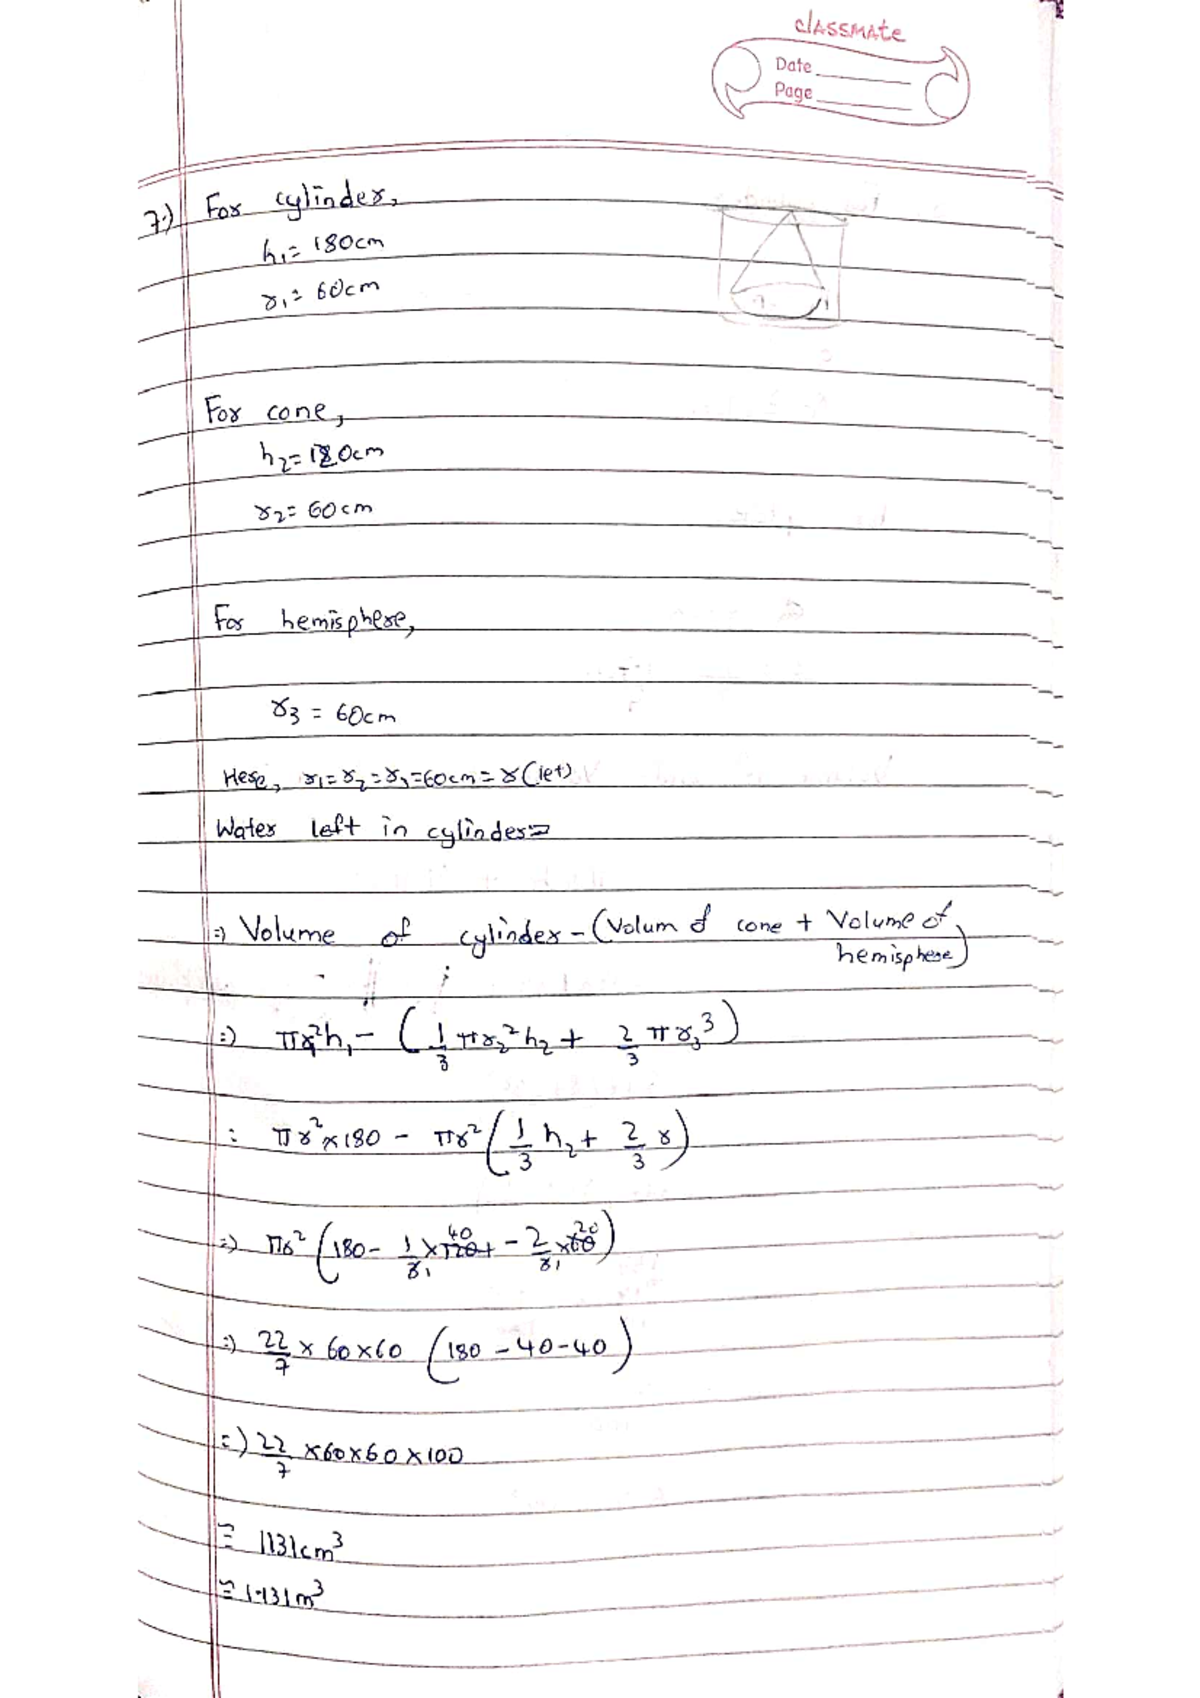 classmate
Date
Page
7.) For cylinder,
h₁ = 180cm
r₁ = 60cm
For cone,
h₂ = 120cm
r₂ = 60cm
For hemisphere,
r₃ = 60cm
Here, r₁ = r₂ = r₃ = 60cm = r (let)
Water left in cylinder =
⇒ Volume of cylinder - (Volum of cone + Volume of hemisphere)
⇒ πr₁²h₁ - (1/3 πr₂²h₂ + 2/3 πr₃³)
= πr² × 180 - πr² (1/3 h₂ + 2/3 r)
⇒ πr² (180 - 1/3₁ × 120 40 - 2/3₁ × 60 20)
⇒ 22/7 × 60 × 60 (180 - 40 - 40)
⇒ 22/7 × 60 × 60 × 100
≅ 1131cm³
≅ 1.131m³